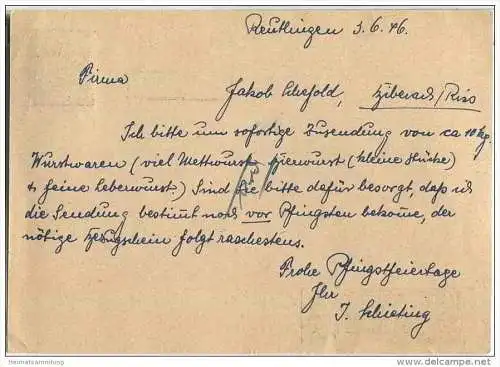 Reutlingen 3.6.46.
Firma
Jakob Schefold, Biberach/Riss
Ich bitte um sofortige Zusendung von ca 10 kg.
Wurstwaren (viel Mettwurst, Bierwurst (kleine Stücke)
& feine Leberwurst.) Sind Sie bitte dafür besorgt, daß ich
die Sendung bestimt noch vor Pfingsten bekome, der
nötige Bezugschein folgt raschestens.
Frohe Pfingstfeiertage
Ihr
J.
Heimatsammlung
www.delcampe.net